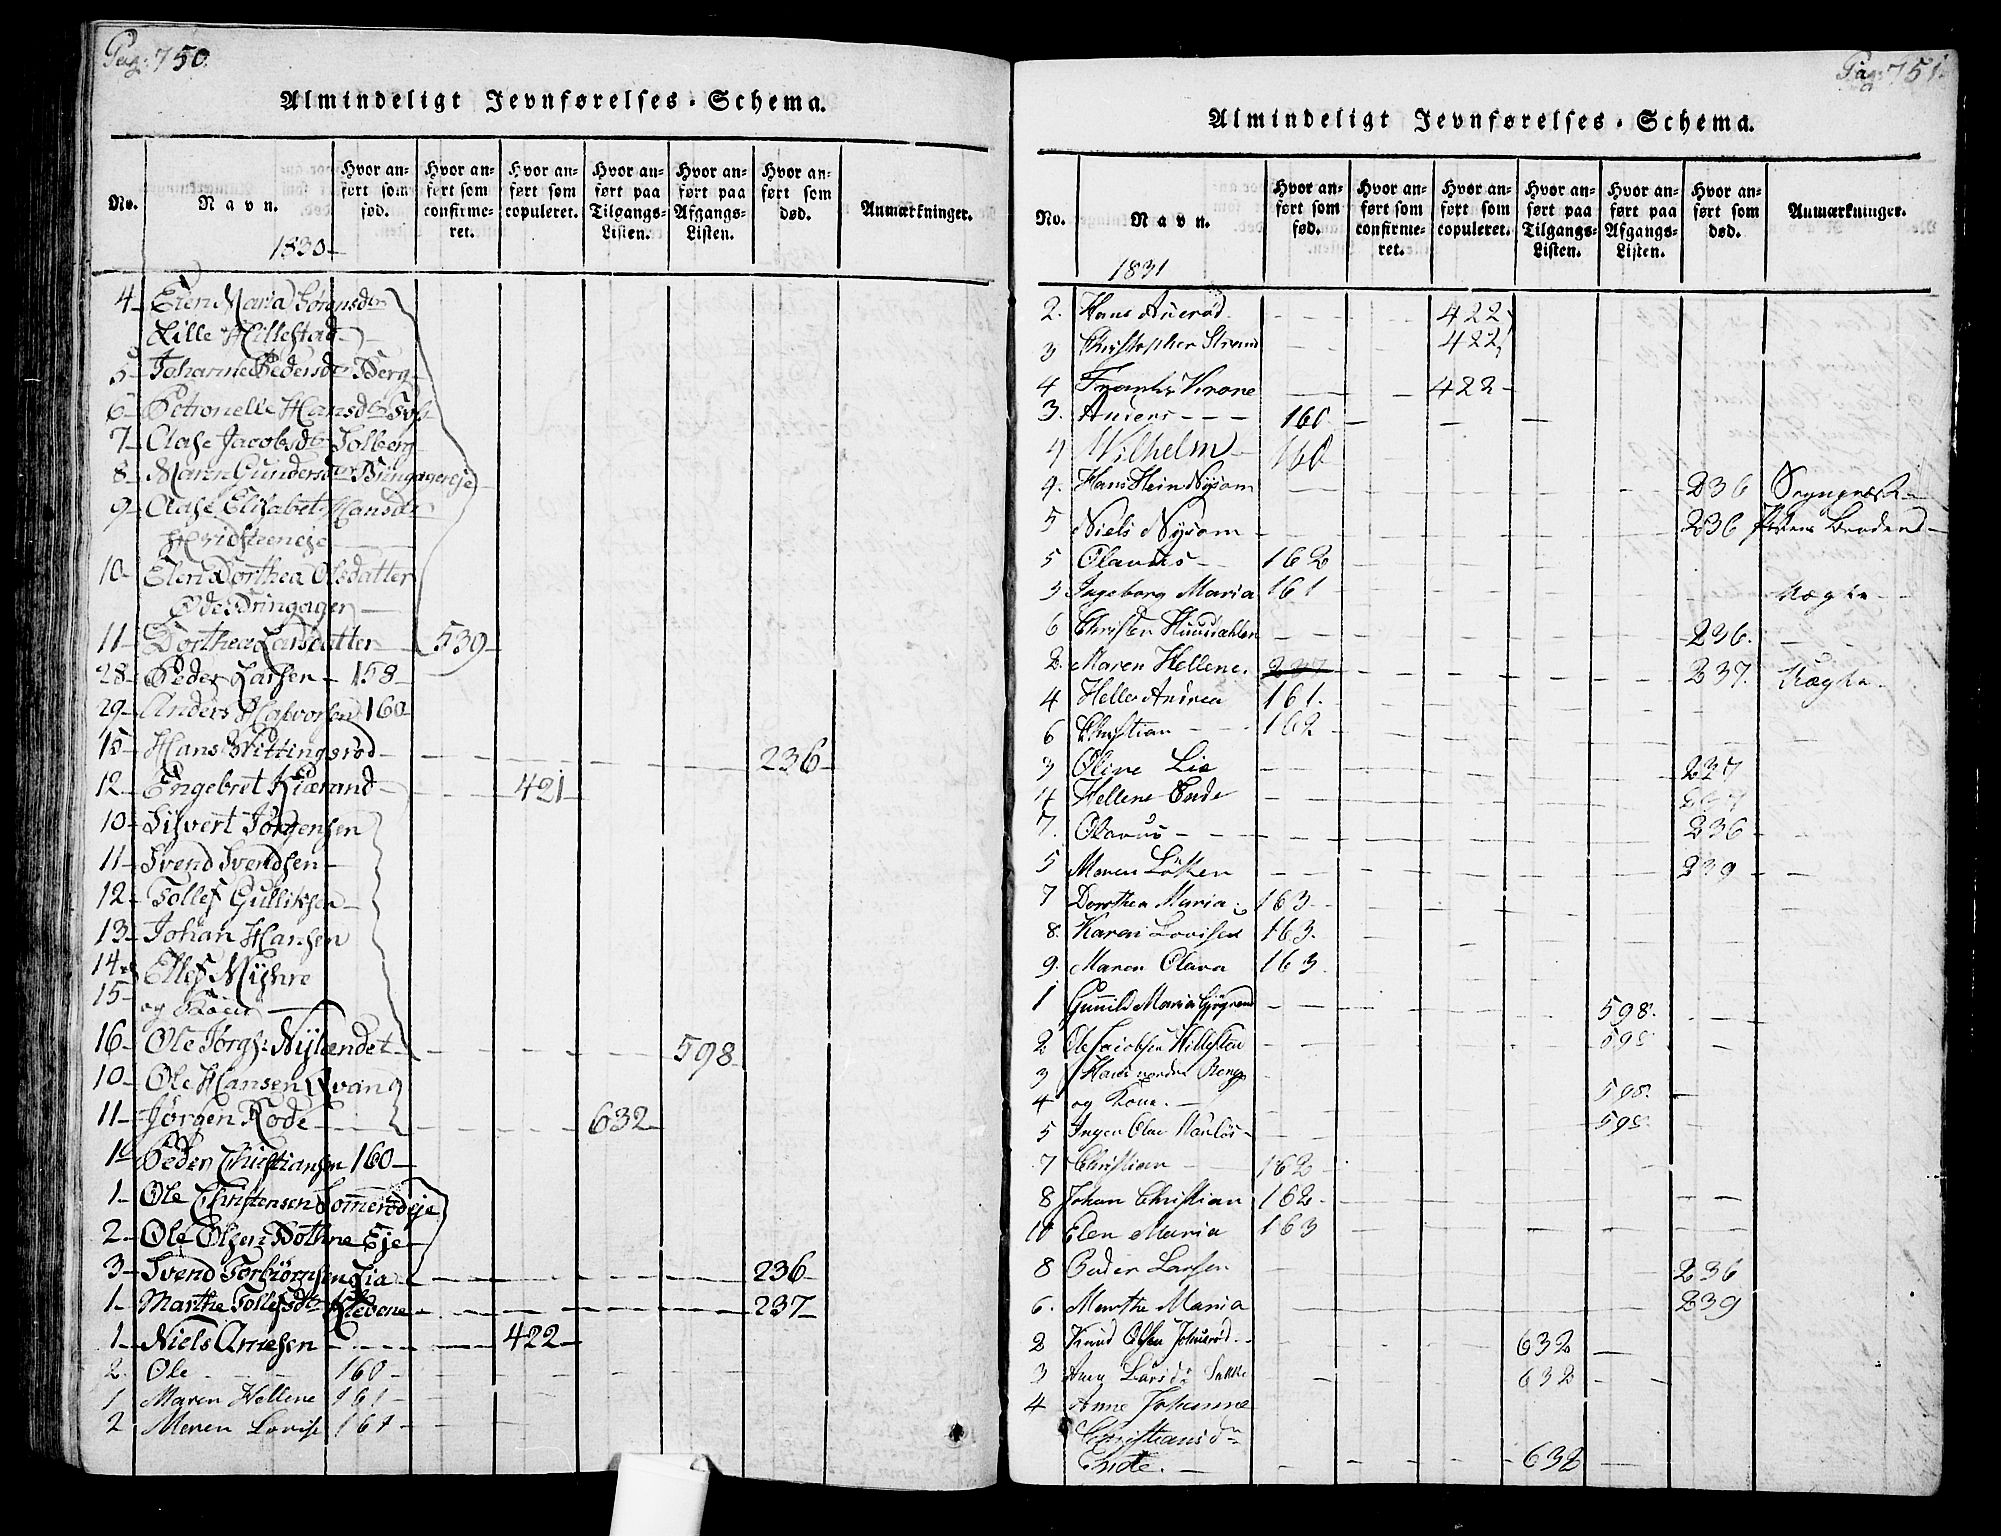 Pag: 750.
Almindeligt Jevnførelses-Schema.
No. Navn. Hvor anført som fød. Hvor anført som confirmeret. Hvor anført som copuleret. Hvor anført paa Tilgangs-Listen. Hvor anført paa Afgangs-Listen. Hvor anført som død. Anmærkninger.
1830-
4- Elen Maria Sørensdr
Lille Hillestad-
5- Johanne Pedersdr Berg
6- Petronelle Hansdr
7- Aase Jacobsdr Solberg
8- Maren Gundersdr Bringagereje
9- Aase Elisabet Hansdr
10- Elen Dorthea Olsdatter
Øde Bringager-
11- Dorthea Larsdatter- 539-
28- Peder Larsen- 158-
29- Anders Halvorsen 160
15- Hans Wittingsrød- 236-
12- Engebret Kiærand- 421-
10- Sifvert Jørgensen
11- Svend Svendsen-
12- Tollef Gulliksen-
13- Johan Hansen
14- Ellef Myhre
15- og Kone
16- Ole Jørgs: Nylændet- 598-
10- Ole Hansen Qvang
11- Jørgen Rode- 632-
1- Peder Christiansen 160-
1- Ole Christensen Sommerødeje
2- Ole Olsen Bothne Eje-
3- Svend Torbiørnsen Lia 236-
1- Marthe Tollefsdr Klevene 237-
1- Niels Arnesen- 422-
2. Ole 160-
1 Maren Hellene 161-
2 Maren Lovise 161-
Pag: 751.
Almindeligt Jevnførelses-Schema.
No. Navn. Hvor anført som fød. Hvor anført som confirmeret. Hvor anført som copuleret. Hvor anført paa Tilgangs-Listen. Hvor anført paa Afgangs-Listen. Hvor anført som død. Anmærkninger.
1831
2. Hans 422-
3 Christopher Strand 422
4 Frants Krone 422-
3. Anders- 160
4 Wilhelm- 160
4. Hans Hein Nysom 236
5 Niels Nysom 236
5 Olavus- 162
3 Ingeborg Maria 161
6 Christen 236.
2. Maren Hellene. 237 237.
4 Helle Andrea 161.
6 Christian 162
3 Oline Lie 237
4 Hellene
7. Olavus- 236
5 Maren Løken 239
7 Dorothea Maria 163.
8. Karen Lovise 163.
9. Maren Olava 163
1 Gunild Maria 598.
2 Ole Jacobsen Hillestad 598
3 Hans
4 og Kone. 598.
5 Inger 598
7 Christian 162
8 Johan Christian 162
10 Elen Maria 163
8 Peder Larsen 236
6. Marthe Maria 239
2 Knud Olsen 632
3 Anne Larsdr 632
4 Anne Johanne
Christiansdr
632